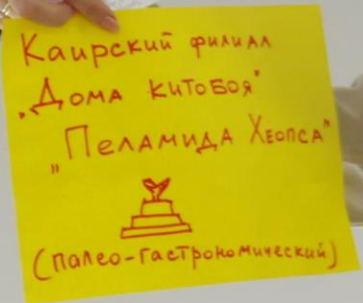 Каирский филиал
„Дома китобоя"
„Пеламида Хеопса"
(палео-гастрономический)